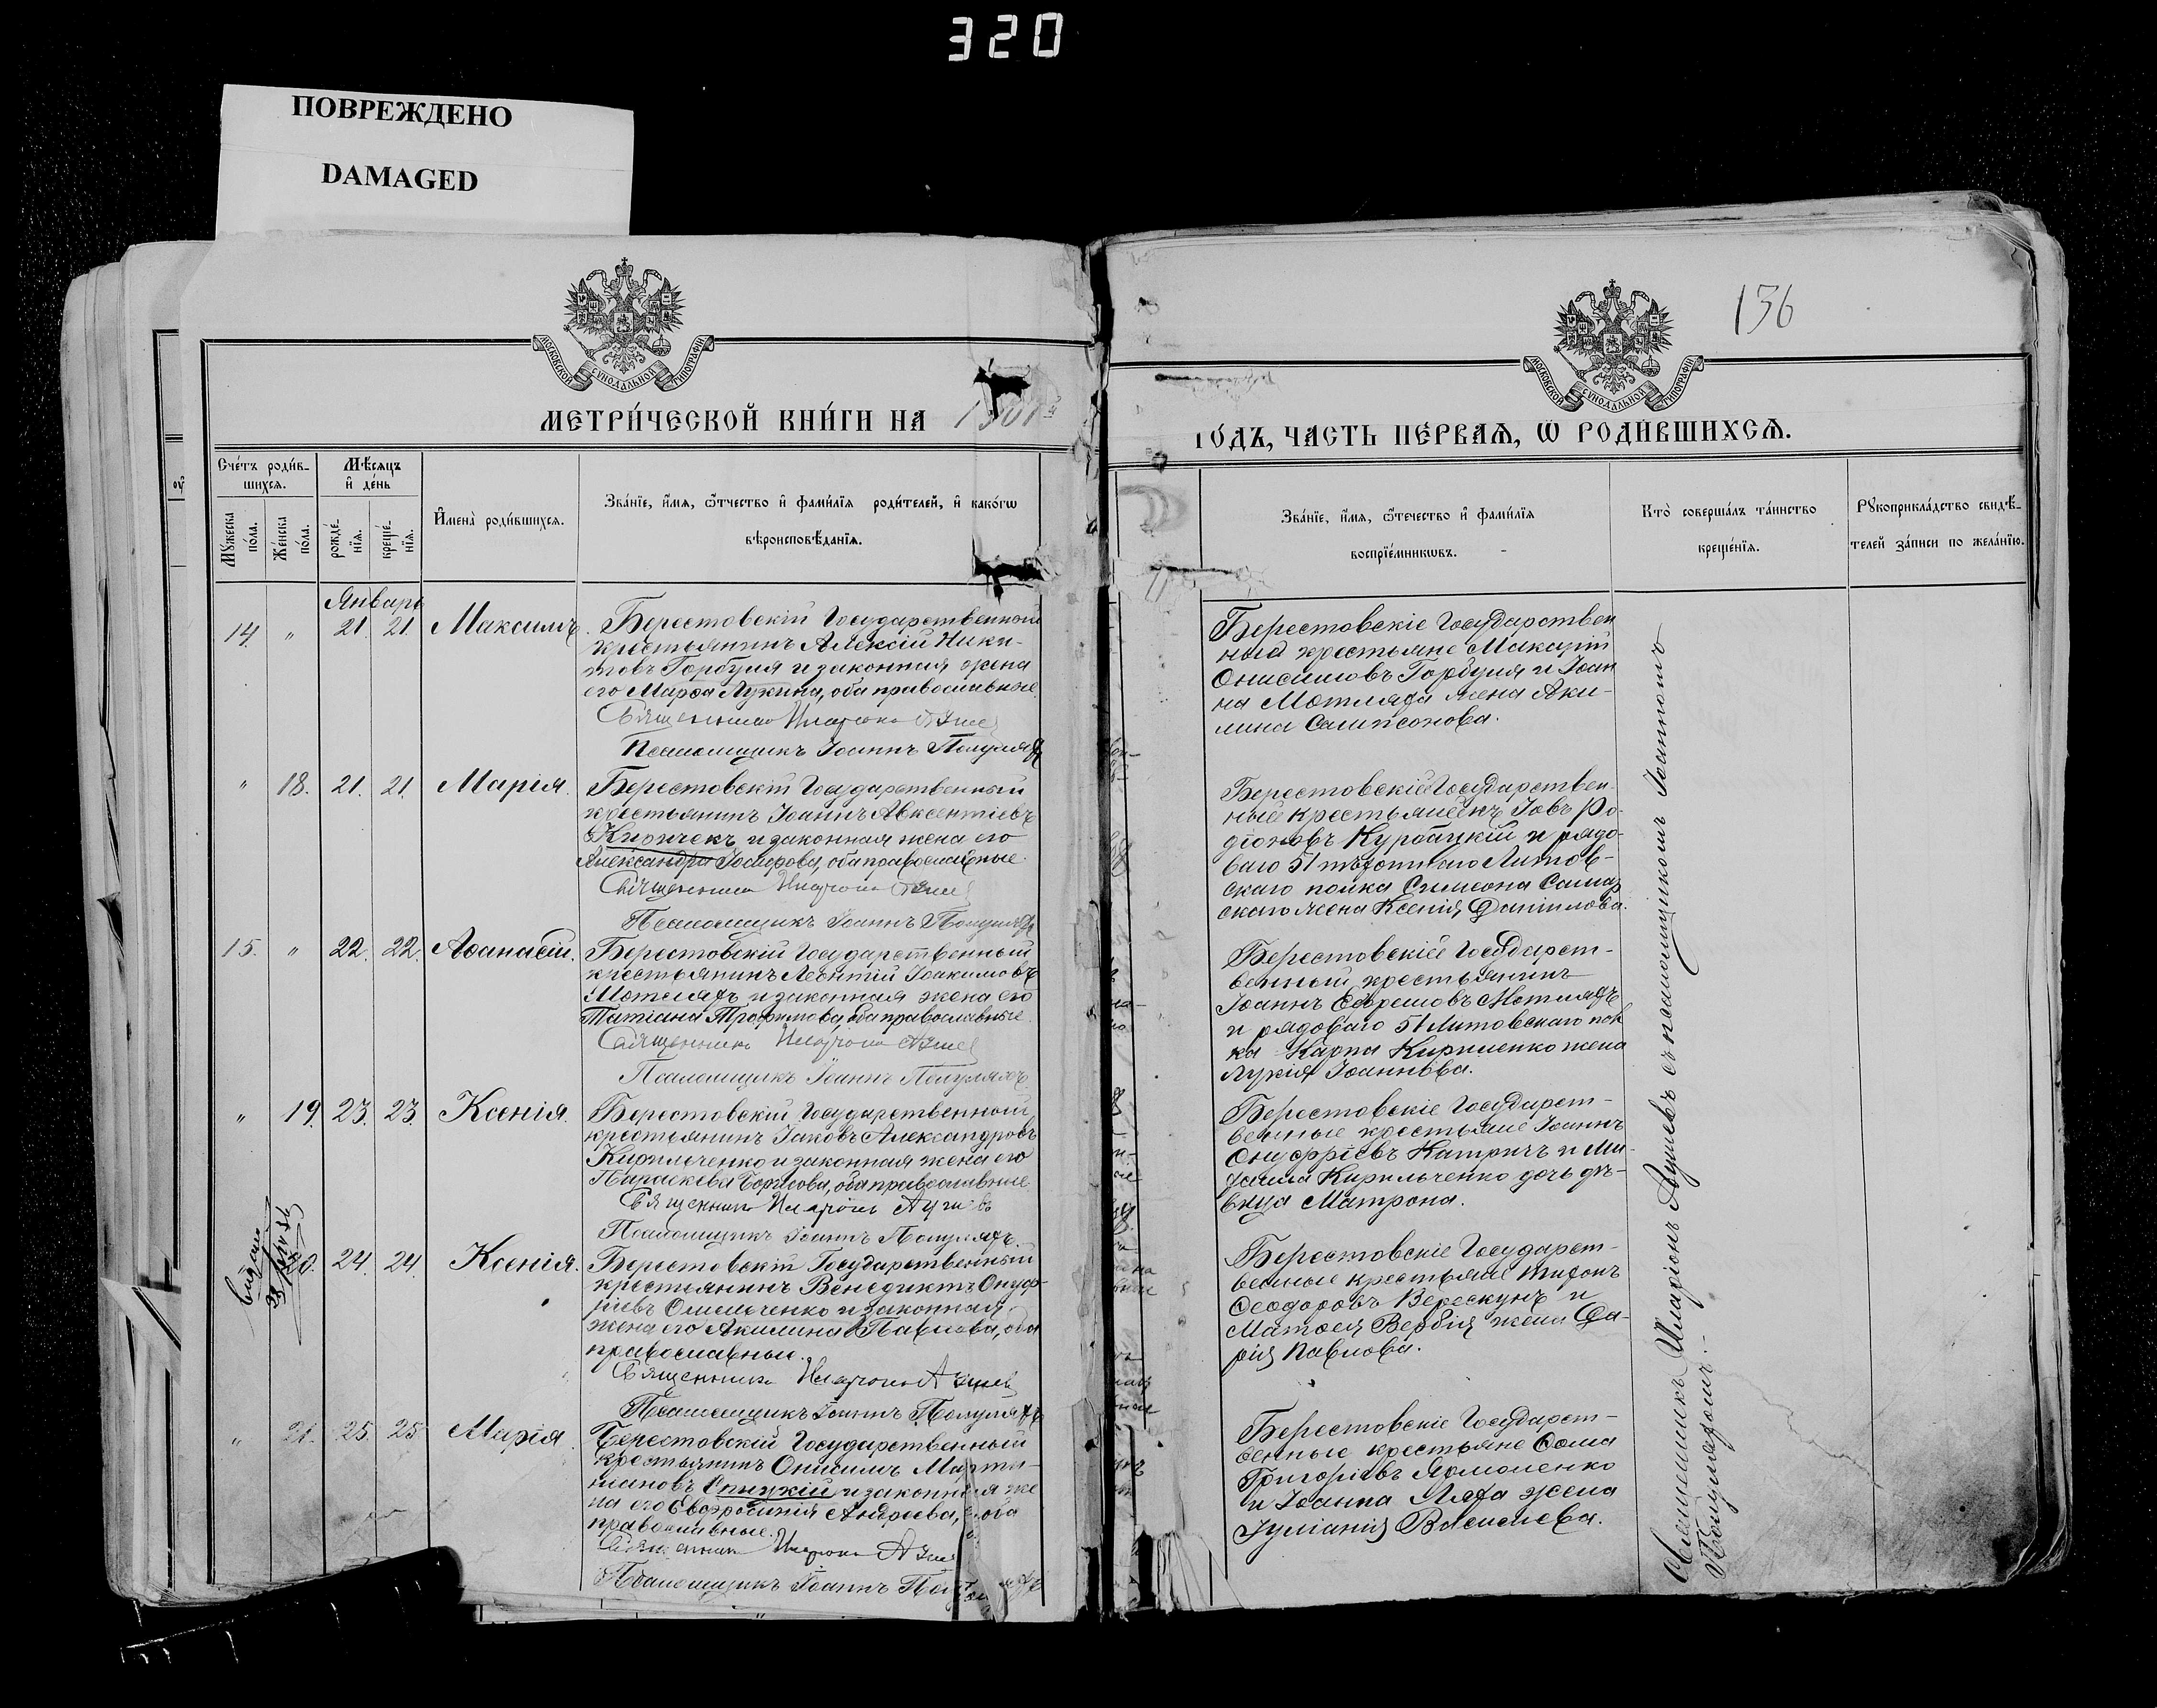 320
ПОВРЕЖДЕНО
DAMAGED
136
МОСКОВСКОЙ СУНОДАЛЬНОЙ ТИПОГРАФІИ
МОСКОВСКОЙ СУНОДАЛЬНОЙ ТИПОГРАФІИ
МЕТРИ́ЧЕСКОЙ КНИ́ГИ НА
ГО́ДЪ, ЧАСТЬ ПЕ́РВАѦ, Ѡ РОДИ́ВШИХСѦ.
Сче́тъ роди́в-
шихся.
Мѣ́сяцъ
и҆ де́нь
Му́жеска
по́ла.
Же́нска
по́ла.
рожде́-
нїя.
креще́-
нїя.
И҆мена̀ роди́вшихся.
Зва́нїе, и҆́мя, ѻ҆́тчество и҆ фами́лїя роди́телей, и҆ како́гѡ
вѣроисповѣ́данїя.
Зва́нїе, и҆́мя, ѻ҆́течество и҆ фами́лїя
воспрїе́мникѡвъ.
Кто̀ соверша́лъ та́инство
креще́нїя.
Рꙋкоприкла́дство свидѣ́-
телей за́писи по жела́нїю.
Январь
14. " 21. 21. Максимъ. Берестовскій Государственный
крестьянинъ Алексій Ники-
товъ Горбуля и законная жена
его Марѳа Лукина, оба православные.
Священникъ Иларіонъ
Псаломщикъ Іоаннъ Полуляхъ
Берестовскіе Государствен
ные крестьяне Макарій
Онисимовъ Горбуля и Іоан
на Мотляха жена Аки-
лина Сампсонова.
" 18. 21. 21. Марія. Берестовскій Государственный
крестьянинъ Іоаннъ Авксентіевъ
Киричекъ и законная жена его
Александра Іосифова, оба православные.
Священникъ Иларіонъ
Псаломщикъ Іоаннъ Полуляхъ
Берестовскій Государствен-
ный крестьянинъ Іовъ Ро-
діоновъ Курбацкій и рядо-
ваго 51 пѣхотнаго Литов-
скаго полка Симеона Самар
скаго жена Ксенія Даніилова.
15. " 22. 22. Аѳанасій. Берестовскій Государственный
крестьянинъ Леонтій Іоакимовъ
Мотляхъ и законная жена его
Татіана Трофимова, оба православные.
Священникъ Иларіонъ
Псаломщикъ Іоаннъ Полуляхъ.
Берестовскій Государст-
венный крестьянинъ
Іоаннъ Ефремовъ Мотляхъ
и рядоваго 51 Литовскаго пол
ка Карпа Кириленко жена
Лукія Іоаннова.
" 19. 23. 23. Ксенія. Берестовскій Государственный
крестьянинъ Іаковъ Александровъ
Кирильченко и законная жена его
Параскева Борисова, оба православные.
Священникъ Иларіонъ
Псаломщикъ Іоаннъ Полуляхъ.
Берестовскіе Государст-
венные крестьяне Іоаннъ
Онуфріевъ Катричъ и Ми-
хаила Кирильченко дочь дѣ-
вица Матрона.
20. 24. 24. Ксенія. Берестовскій Государственный
крестьянинъ Венедиктъ Онуф-
ріевъ Омельченко и законная
жена его Акилина Павлова, оба
православные.
Священникъ Иларіонъ
Псаломщикъ Іоаннъ Полуляхъ
Берестовскіе Государст-
венные крестьяне Тихонъ
Ѳеодоровъ Верескунъ и
Матѳея Вербія жена Да-
рія Павлова.
" 21. 25. 25 Марія. Берестовскій Государственный
крестьянинъ Онисимъ Марти-
ніановъ и законная же
на его Евфросинія Андреева, оба
православные.
Священникъ Иларіонъ
Псаломщикъ Іоаннъ
Берестовскіе Государст-
венные крестьяне Ѳома
Григоріевъ Ярмоленко
и Іоанна Ляха жена
Іуліанія Васильева.
Священникъ Иларіонъ съ псаломщикомъ Іоанномъ
Полуляхомъ.